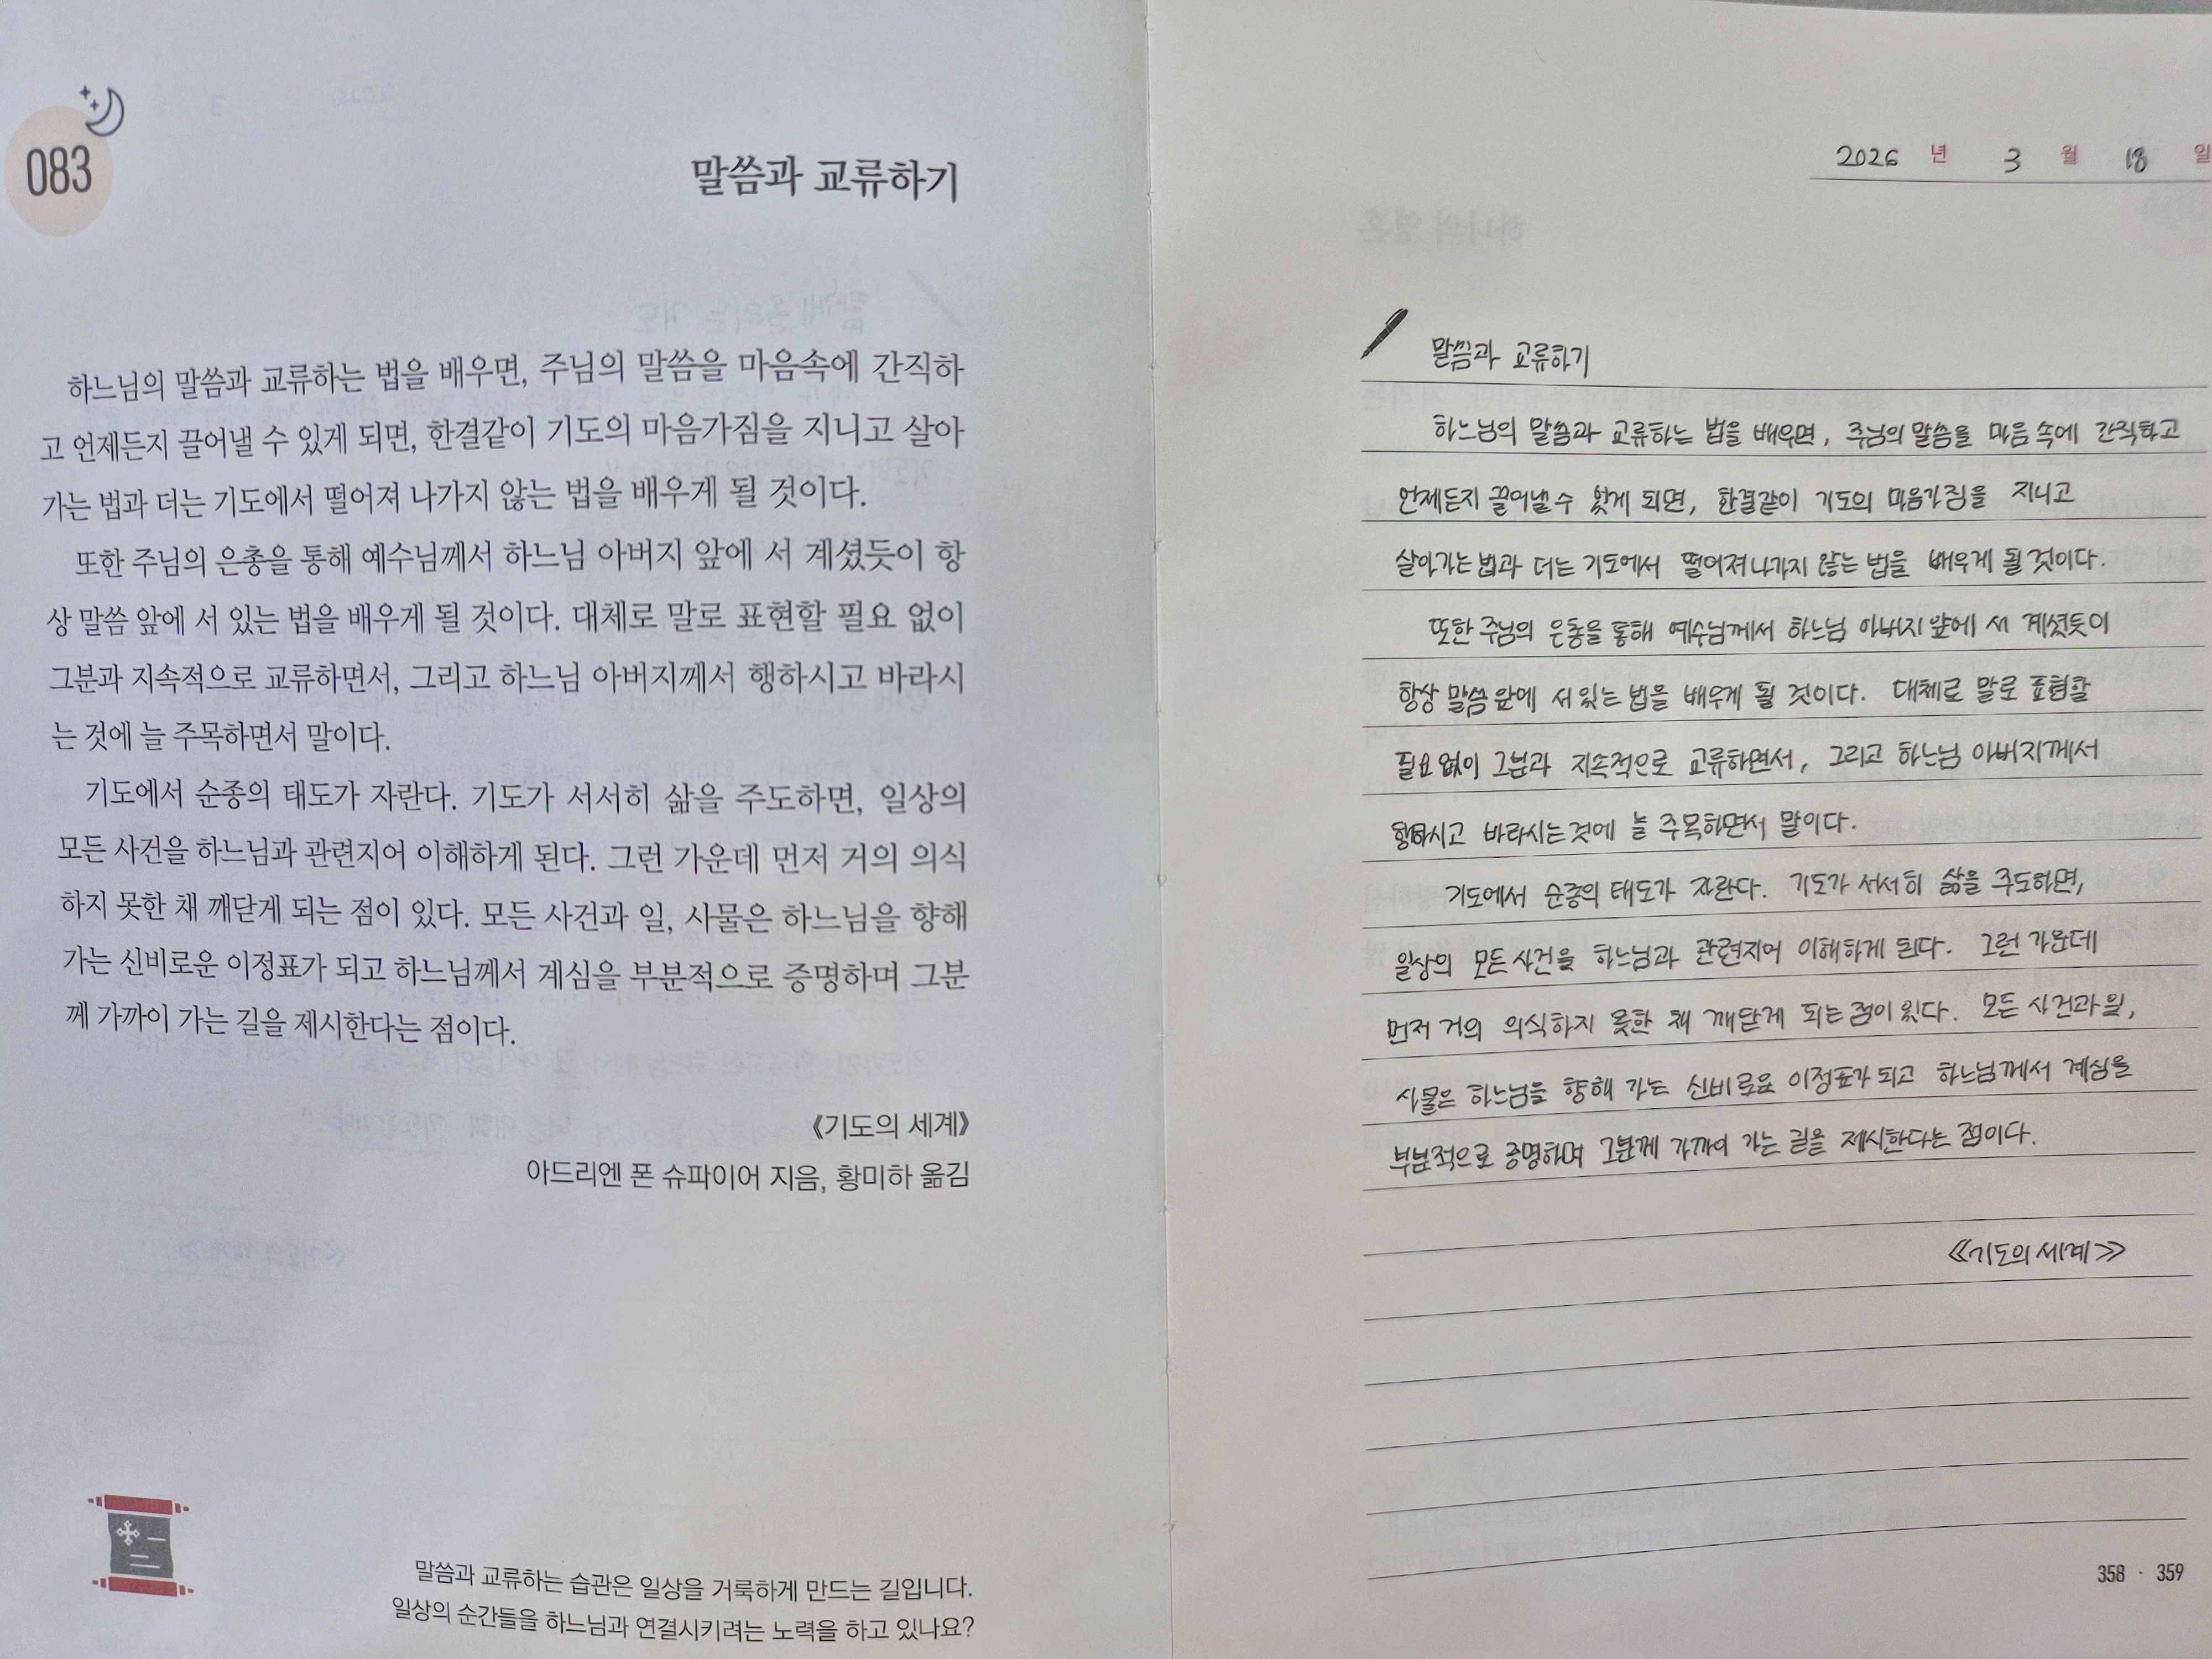 083
말씀과 교류하기
하느님의 말씀과 교류하는 법을 배우면, 주님의 말씀을 마음속에 간직하
고 언제든지 끌어낼 수 있게 되면, 한결같이 기도의 마음가짐을 지니고 살아
가는 법과 더는 기도에서 떨어져 나가지 않는 법을 배우게 될 것이다.
또한 주님의 은총을 통해 예수님께서 하느님 아버지 앞에 서 계셨듯이 항
상 말씀 앞에 서 있는 법을 배우게 될 것이다. 대체로 말로 표현할 필요 없이
그분과 지속적으로 교류하면서, 그리고 하느님 아버지께서 행하시고 바라시
는 것에 늘 주목하면서 말이다.
기도에서 순종의 태도가 자란다. 기도가 서서히 삶을 주도하면, 일상의
모든 사건을 하느님과 관련지어 이해하게 된다. 그런 가운데 먼저 거의 의식
하지 못한 채 깨닫게 되는 점이 있다. 모든 사건과 일, 사물은 하느님을 향해
가는 신비로운 이정표가 되고 하느님께서 계심을 부분적으로 증명하며 그분
께 가까이 가는 길을 제시한다는 점이다.
《기도의 세계》
아드리엔 폰 슈파이어 지음, 황미하 옮김
말씀과 교류하는 습관은 일상을 거룩하게 만드는 길입니다.
일상의 순간들을 하느님과 연결시키려는 노력을 하고 있나요?
2026 년 3 월 18 일
말씀과 교류하기
하느님의 말씀과 교류하는 법을 배우면, 주님의 말씀을 마음 속에 간직하고
언제든지 끌어낼 수 있게 되면, 한결같이 기도의 마음가짐을 지니고
살아가는 법과 더는 기도에서 떨어져 나가지 않는 법을 배우게 될 것이다.
또한 주님의 은총을 통해 예수님께서 하느님 아버지 앞에 서 계셨듯이
항상 말씀 앞에 서 있는 법을 배우게 될 것이다. 대체로 말로 표현할
필요 없이 그분과 지속적으로 교류하면서, 그리고 하느님 아버지께서
행하시고 바라시는 것에 늘 주목하면서 말이다.
기도에서 순종의 태도가 자란다. 기도가 서서히 삶을 주도하면,
일상의 모든 사건을 하느님과 관련지어 이해하게 된다. 그런 가운데
먼저 거의 의식하지 못한 채 깨닫게 되는 점이 있다. 모든 사건과 일,
사물은 하느님을 향해 가는 신비로운 이정표가 되고 하느님께서 계심을
부분적으로 증명하며 그분께 가까이 가는 길을 제시한다는 점이다.
《기도의 세계》
358 · 359